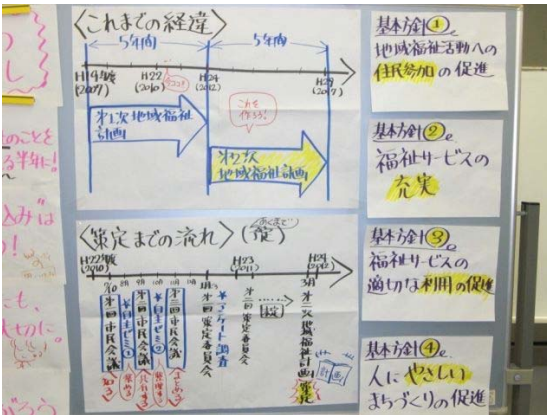 〈これまでの経違〉
5年間
5年間
H19年度
(2007)
H22
(2010)
ココ!!
H24
(2012)
H29
(2017)
第1次地域福祉
計画
これを
作ろう!
第2次
地域福祉計画
〈策定までの流れ〉
(あくまで予定)
H22年度
(2010)
H23
(2011)
H24
(2012)
8月
9月
10月
10月
1月
3月
第一回市民会議
★自主ゼミ①
第二回市民会議
★自主ゼミ②
第三回市民会議
第一回策定委員会
★アンケート調査
第二回策定委員会
第二次地域福祉計画
策定
計画
基本方針①
地域福祉活動への
住民参加の促進
基本方針②
福祉サービスの
充実
基本方針③
福祉サービスの
適切な利用の促進
基本方針④
人にやさしい
まちづくりの促進
のことを
る半年に!
込みは
!
にも、
切に。
がろう